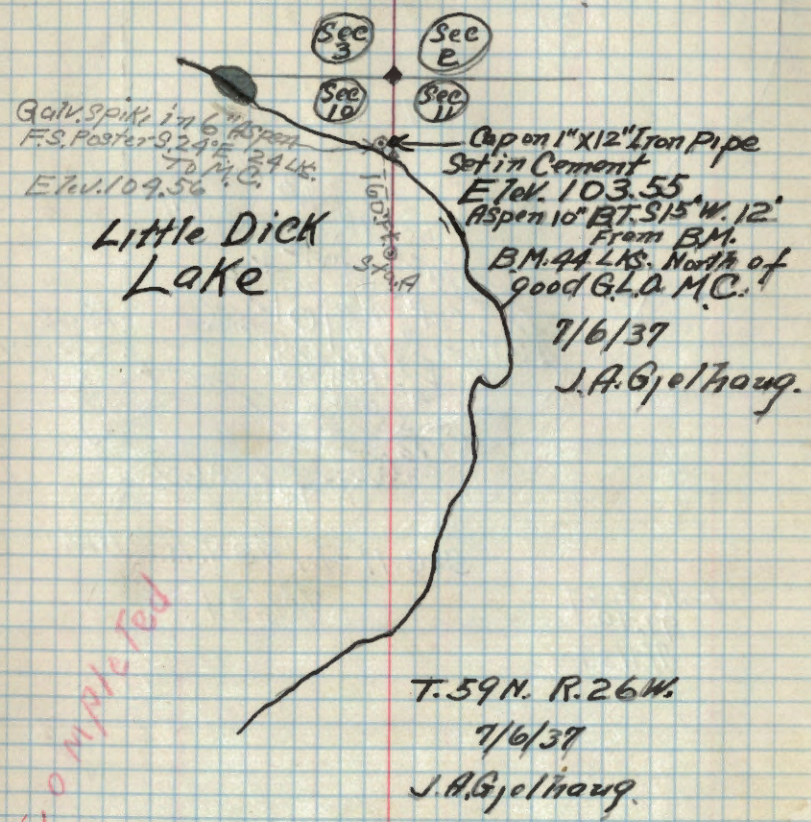 Sec
3
Sec
2
Sec
10
Sec
11
Galv. Spike in 6" Aspen
F.S. Poster S. 24° E. 24 LK.
To M.C.
Elev. 104.56
Cap on 1" x 12" Iron Pipe
Set in Cement
Elev. 103.55
Aspen 10" B.T. S 15° W. 12'
From B.M.
B.M. 44 LKS. North of
good G.L.O. M.C.
7/6/37
J.A. Gjelhaug.
Little Dick
Lake
Sta. A
Completed
T. 59 N. R. 26 W.
7/6/37
J.A. Gjelhaug.